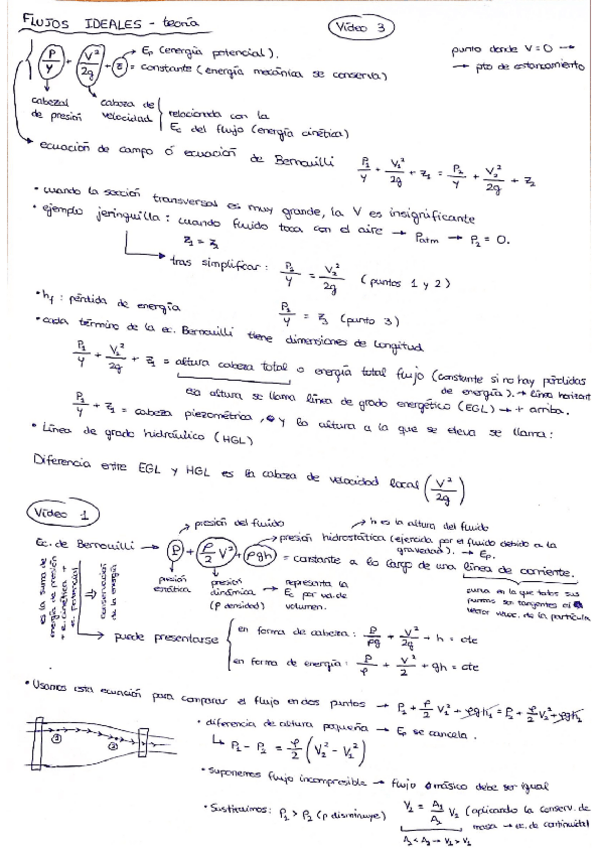 FLUJOS IDEALES - teoría
Video 3
P/γ + V²/2g + z = constante (energía mecánica se conserva)
Ep (energía potencial).
punto donde V=0 →
→ pto de estancamiento
cabezal de presión
cabeza de velocidad
relacionada con la Ec del flujo (energía cinética)
ecuación de campo ó ecuación de Bernouilli P₁/γ + V₁²/2g + z₁ = P₂/γ + V₂²/2g + z₂
• cuando la sección transversal es muy grande, la V es insignificante
• ejemplo jeringuilla: cuando fluido toca con el aire → Patm → P₂ = 0.
z₁ = z₂
tras simplificar: P₁/γ = V₂²/2g (puntos 1 y 2)
• hf: pérdida de energía
P₁/γ = z₃ (punto 3)
• cada término de la ec. Bernouilli tiene dimensiones de longitud
P₁/γ + V₁²/2g + z₁ = altura cabeza total o energía total flujo (constante si no hay pérdidas
de energía). → línea horizont
esa altura se llama línea de grado energético (EGL) → + arriba.
P₁/γ + z₁ = cabeza piezométrica, y la altura a la que se eleva se llama:
• Línea de grado hidráulico (HGL)
Diferencia entre EGL y HGL es la cabeza de velocidad local (V²/2g)
Video 1
presión del fluido
h es la altura del fluido
presión hidrostática (ejercida por el fluido debido a la
gravedad). → Ep.
Ec. de Bernouilli → P + ρ/2 V² + ρgh = constante a lo largo de una línea de corriente.
es la suma de energía de presión + e. cinética + e. potencial
⇒ conservación de la energía
presión estática
presión dinámica (ρ densidad)
representa la Ec por ud. de volumen.
curva en la que todos sus
puntos son tangentes al
vector veloc. de la partícula
puede presentarse
en forma de cabeza: P/ρg + V²/2g + h = cte
en forma de energía: P/ρ + V²/2 + gh = cte
• Usamos esta ecuación para comparar el flujo en dos puntos → P₁ + ρ/2 V₁² + ρgh₁ = P₂ + ρ/2 V₂² + ρgh₂
• diferencia de altura pequeña → Ep se cancela.
P₁ - P₂ = ρ/2 (V₂² - V₁²)
• suponemos flujo incompresible → flujo másico debe ser igual
• Sustituimos: P₁ > P₂ (P disminuye)
V₂ = A₁/A₂ V₁ (aplicando la conserv. de
masa → ec. de continuidad)
A₂ < A₁ → V₂ > V₁